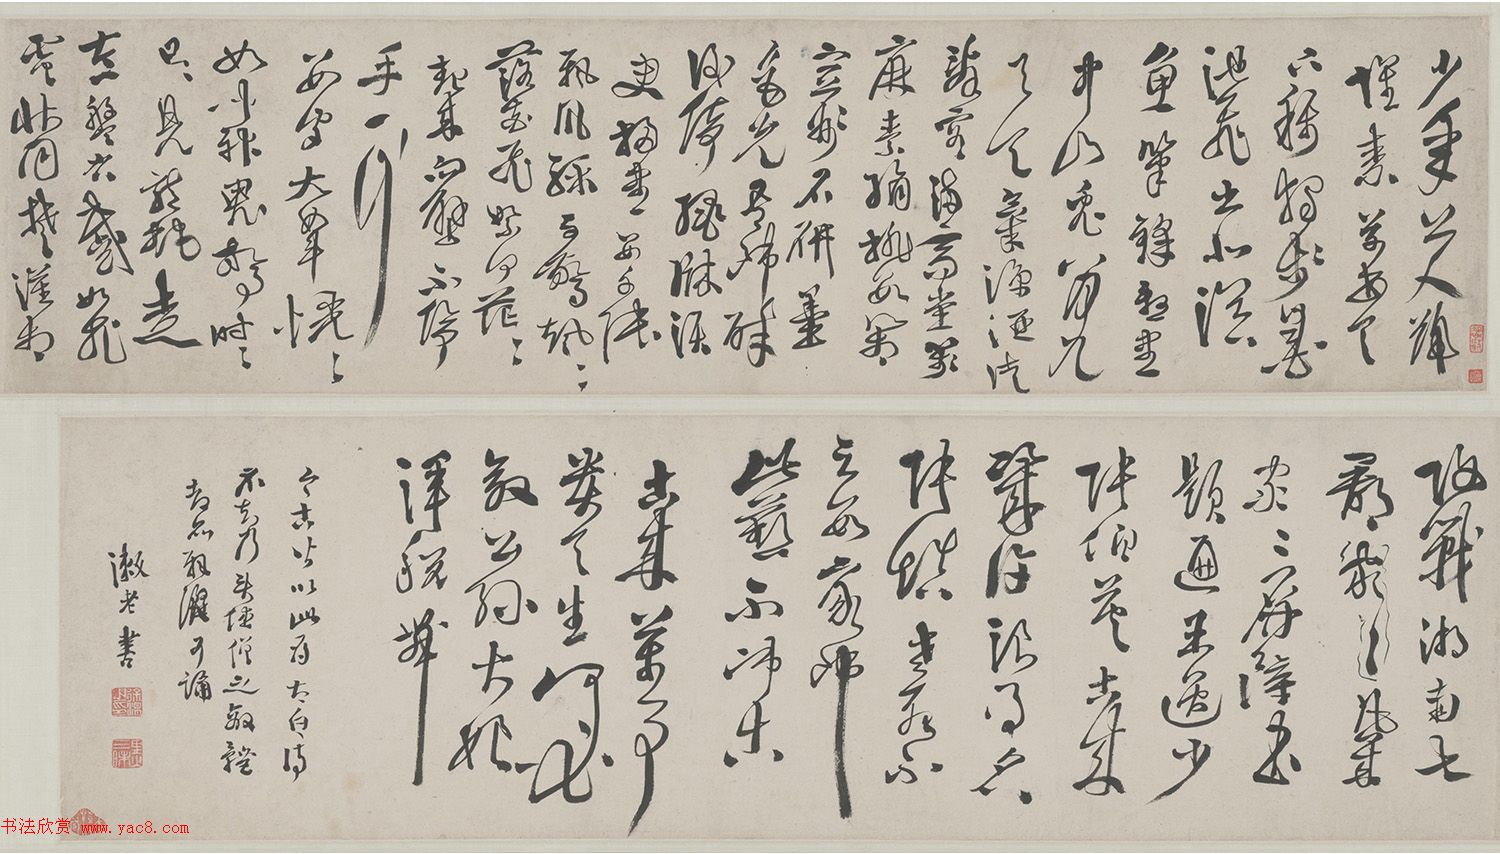 少年上人號
懷素草書天
下稱獨步墨
池飛出北溟
魚筆鋒殺盡
中山兔八月九
月天氣涼酒徒
辭客滿高堂箋
麻素絹排數箱
宣州石研墨
色光吾師醉
後倚繩牀須
臾掃盡數千張
飄風驟雨驚颯〻
落花飛雪何茫〻
起來向壁不停
手一行
數字大如斗恍〻
如聞神鬼驚時〻
只見龍蛇走
左盤右蹙如
電狀同楚漢相
攻戰湖南七
郡
家〻屏障書
題遍王逸少
張伯英古來
幾許浪得名
張顛老死不
足數我師
此藝不師古
古來萬事
貴天生何必
要公孫大娘
渾脫舞
今古皆以此為太白詩
不知乃僧之
可誦
漱老書
书法欣赏 www.yac8.com